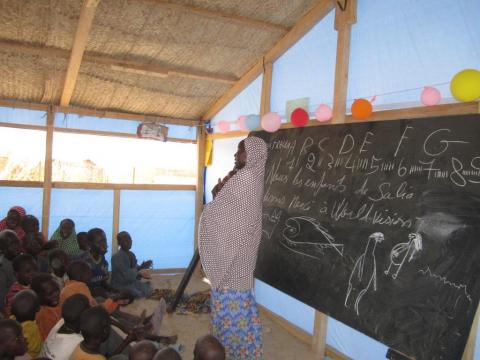 B C D E F G
1 2 3 4 5 6 7 8
Nous les enfants de Salia
à World Vision